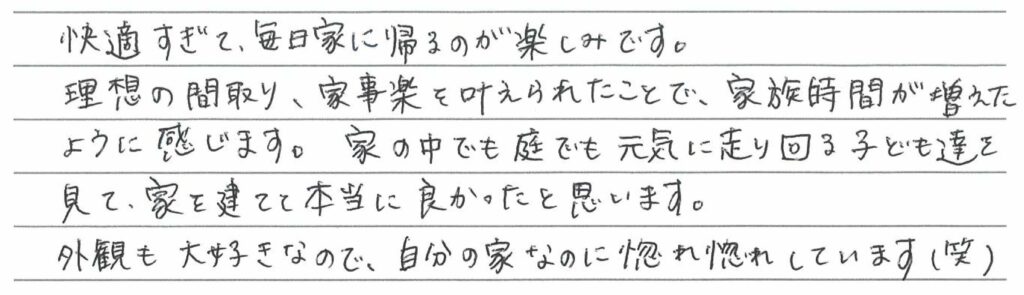 快適すぎて、毎日家に帰るのが楽しみです。
理想の間取り、家事楽を叶えられたことで、家族時間が増えた
ように感じます。 家の中でも庭でも元気に走り回る子ども達を
見て、家を建てて本当に良かったと思います。
外観も大好きなので、自分の家なのに惚れ惚れしています(笑)